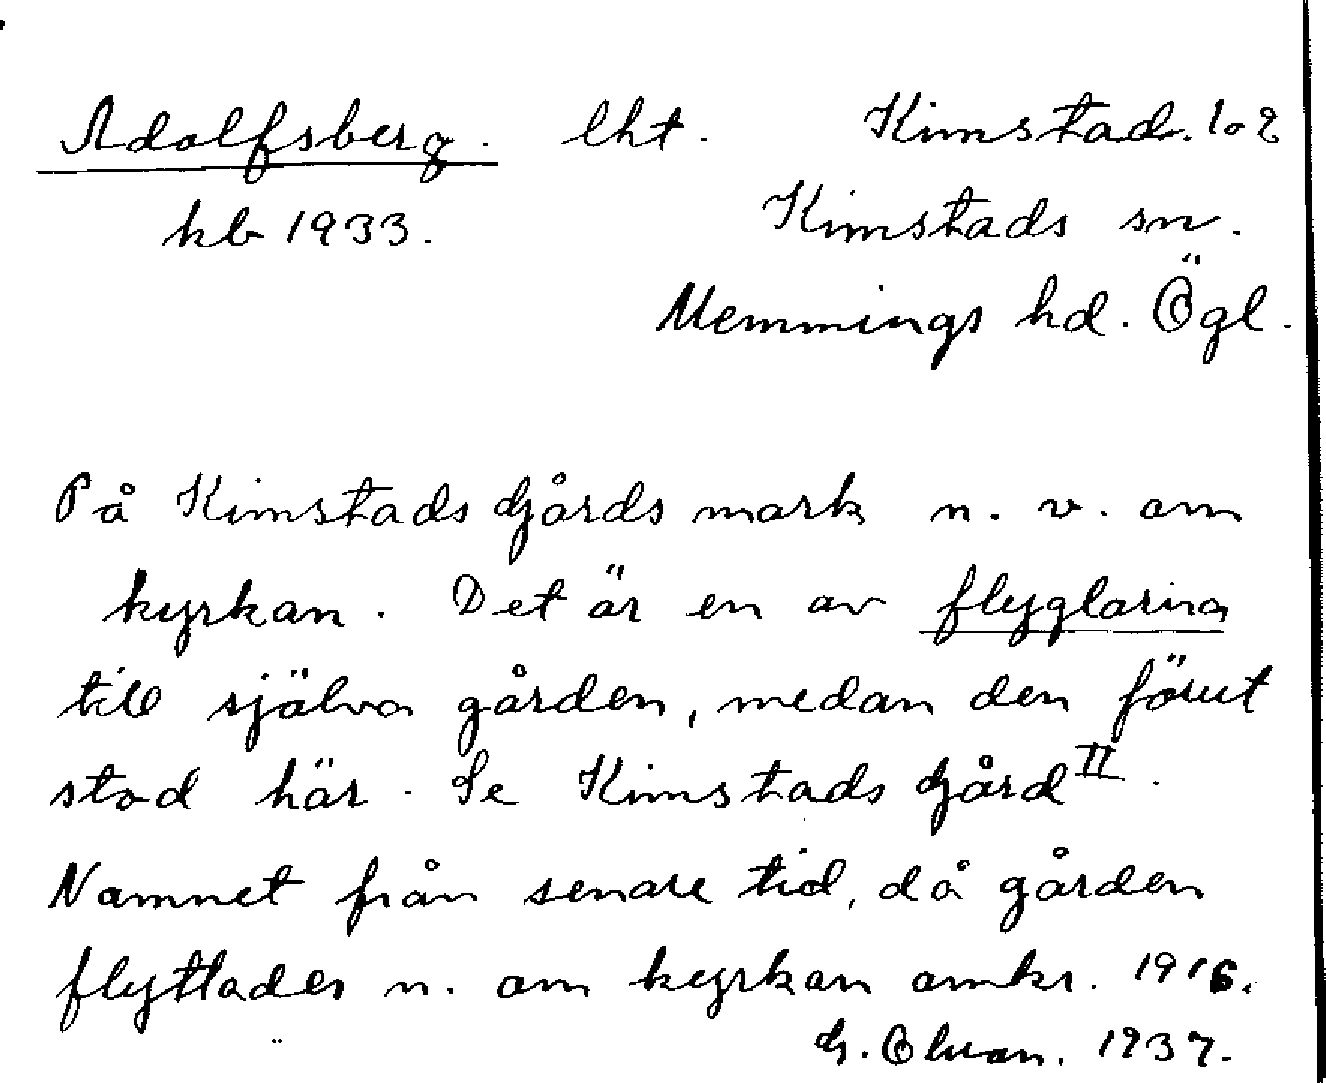 Adolfsberg. lht. Kimstad. 1 o 2
kb 1933. Kimstads sn.
Memmings hd. Ögl.
På Kimstads Gårds mark n. v. om
kyrkan. Det är en av flyglarna
till själva gården, medan den förut
stod här. Se Kimstads Gård II.
Namnet från senare tid, då gården
flyttades n. om kyrkan omkr. 1916.
G. Olsson. 1937.